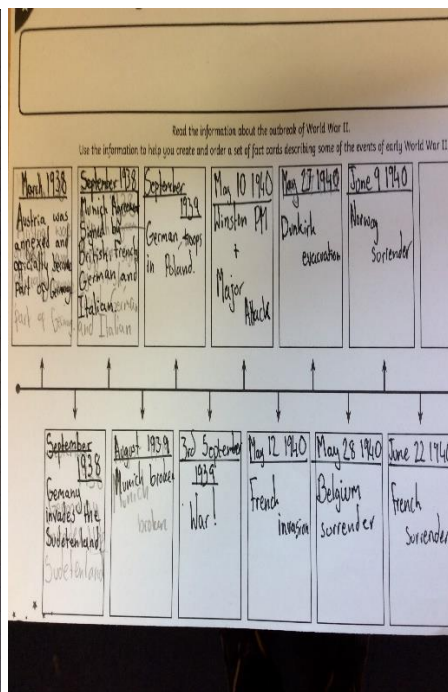 Read the information about the outbreak of World War II.
Use the information to help you create and order a set of fact cards describing some of the events of early World War II
March 1938
Austria was
annexed and
officially
part of Germany
September 1938
Munich Agreement
Signed by
British, French
German and
Italian
and Italian
September
1939
German troops
in Poland.
May 10 1940
Winston PM
+
Major
Attack
May 27 1940
Dunkirk
evacuation
June 9 1940
Norway
Sorrender
September
1938
Gemany
invades the
Sudetenland
Sudetenland
August 1939
Munich broken
Munich
broken
3rd September
1939
War!
May 12 1940
French
invasion
May 28 1940
Belgium
surrender
June 22 1940
French
Surrender